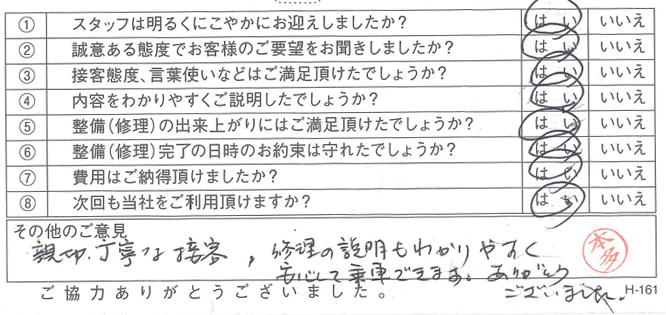 ① スタッフは明るくにこやかにお迎えしましたか? はい いいえ
② 誠意ある態度でお客様のご要望をお聞きしましたか? はい いいえ
③ 接客態度、言葉使いなどはご満足頂けたでしょうか? はい いいえ
④ 内容をわかりやすくご説明したでしょうか? はい いいえ
⑤ 整備(修理)の出来上がりにはご満足頂けたでしょうか? はい いいえ
⑥ 整備(修理)完了の日時のお約束は守れたでしょうか? はい いいえ
⑦ 費用はご納得頂けましたか? はい いいえ
⑧ 次回も当社をご利用頂けますか? はい いいえ
その他のご意見
親切、丁寧な接客, 修理の説明もわかりやすく
安心して乗車できます。ありがとう
ございました。
本多
ご協力ありがとうございました。 H-161